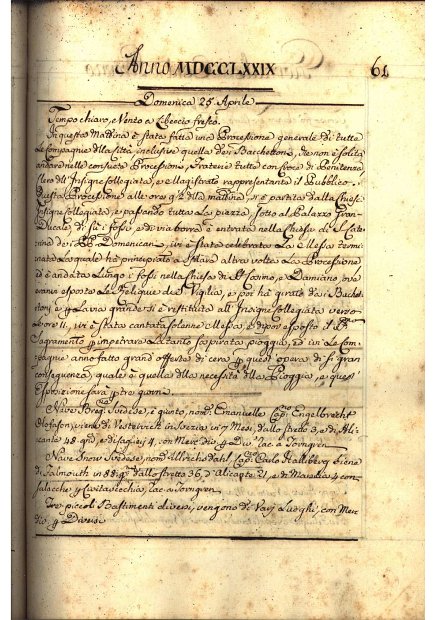 Anno MDCCLXXIX 61
Domenica 25 Aprile
Tempo chiaro, e Vento a Libeccio fresco.
In questa Mattina è stata fatta una Processione generale di tutte
le Compagnie della Città inclusive quella dei Bacchettoni, che non è solita
andare nelle consuete Processioni, Fraterie tutte con Croce di Penitenza
Clero dell'Insigne Collegiata, e il Magistrato rappresentante il Pubblico.
Questa Processione alle ore 9 1/2 della mattina, è partita dalla Chiesa
Insigne Collegiata, e passando tutta La piazza, sotto al Palazzo Gran
Ducale, di su i fossi, e di via borra è entrata nella Chiesa di S. Cate
rina dei PP. Domenicani, ivi è stata celebrata La Messa, termi
nata La quale hà principiato a sfilare altra volta La Processione
ed è andata Lungo i fossi nella Chiesa di S. Cosimo, e Damiano, ove
erano esposte Le Reliquie della Vigilia, e poi hà girato dai Bachet
toni, e p La via grande si è restituita all'Insigne Collegiata verso
Le ore 11, ivi è stata cantata solenne Messa, e dipoi esposto il SS.
Sagramento p impetrare La tanto sospirata pioggia, ed ivi Le Com
pagnie anno fatto grand'offerta di cera p quest'opera di sì gran
conseguenza, quale è quella della necessità della Pioggia, e quest'
Esposizione sarà p tre giorni.
Nave Svedese, nomª Emanuelle Capno Engelbrecht
Olofson, viene di Vestervick in Svezia in Mesi, dallo stretto 3, e di Ali
cante 48 gni, e di 4, con Merce dio p Div. Rac. a Törngren
Nave Snow Svedese nomª Ulrichsdahl Capno Carlo Hallberg viene
di Falmouth in 88 gni dallo stretto 36, d'Alicante 21, e di Marsilia 4 con
salacche p Civitavecchia, Rac. a Törngren
Tre piccoli Bastimenti diversi, vengono di Varj Luoghi, con Mer
dio p Diversi